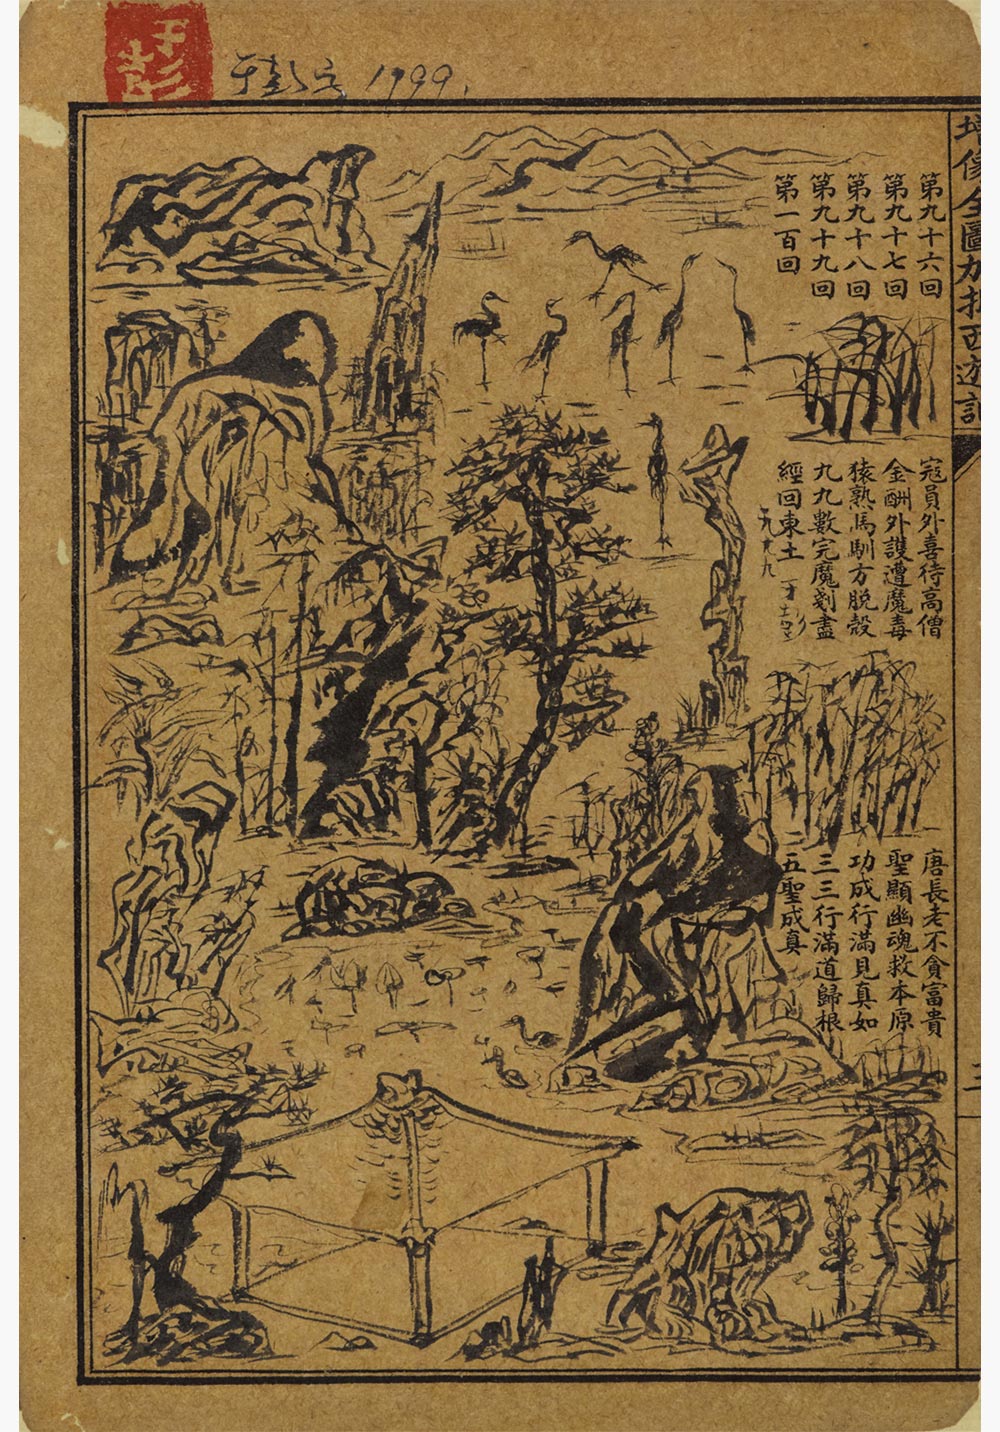 于彭
于彭 1999.
增像全圖加批西遊記
第九十六回 寇員外喜待高僧 唐長老不貪富貴
第九十七回 金酬外護遭魔毒 聖顯幽魂救本原
第九十八回 猿熟馬馴方脫殼 功成行滿見真如
第九十九回 九九數完魔剗盡 三三行滿道歸根
第一百回 經回東土 五聖成真
一九九九 于彭